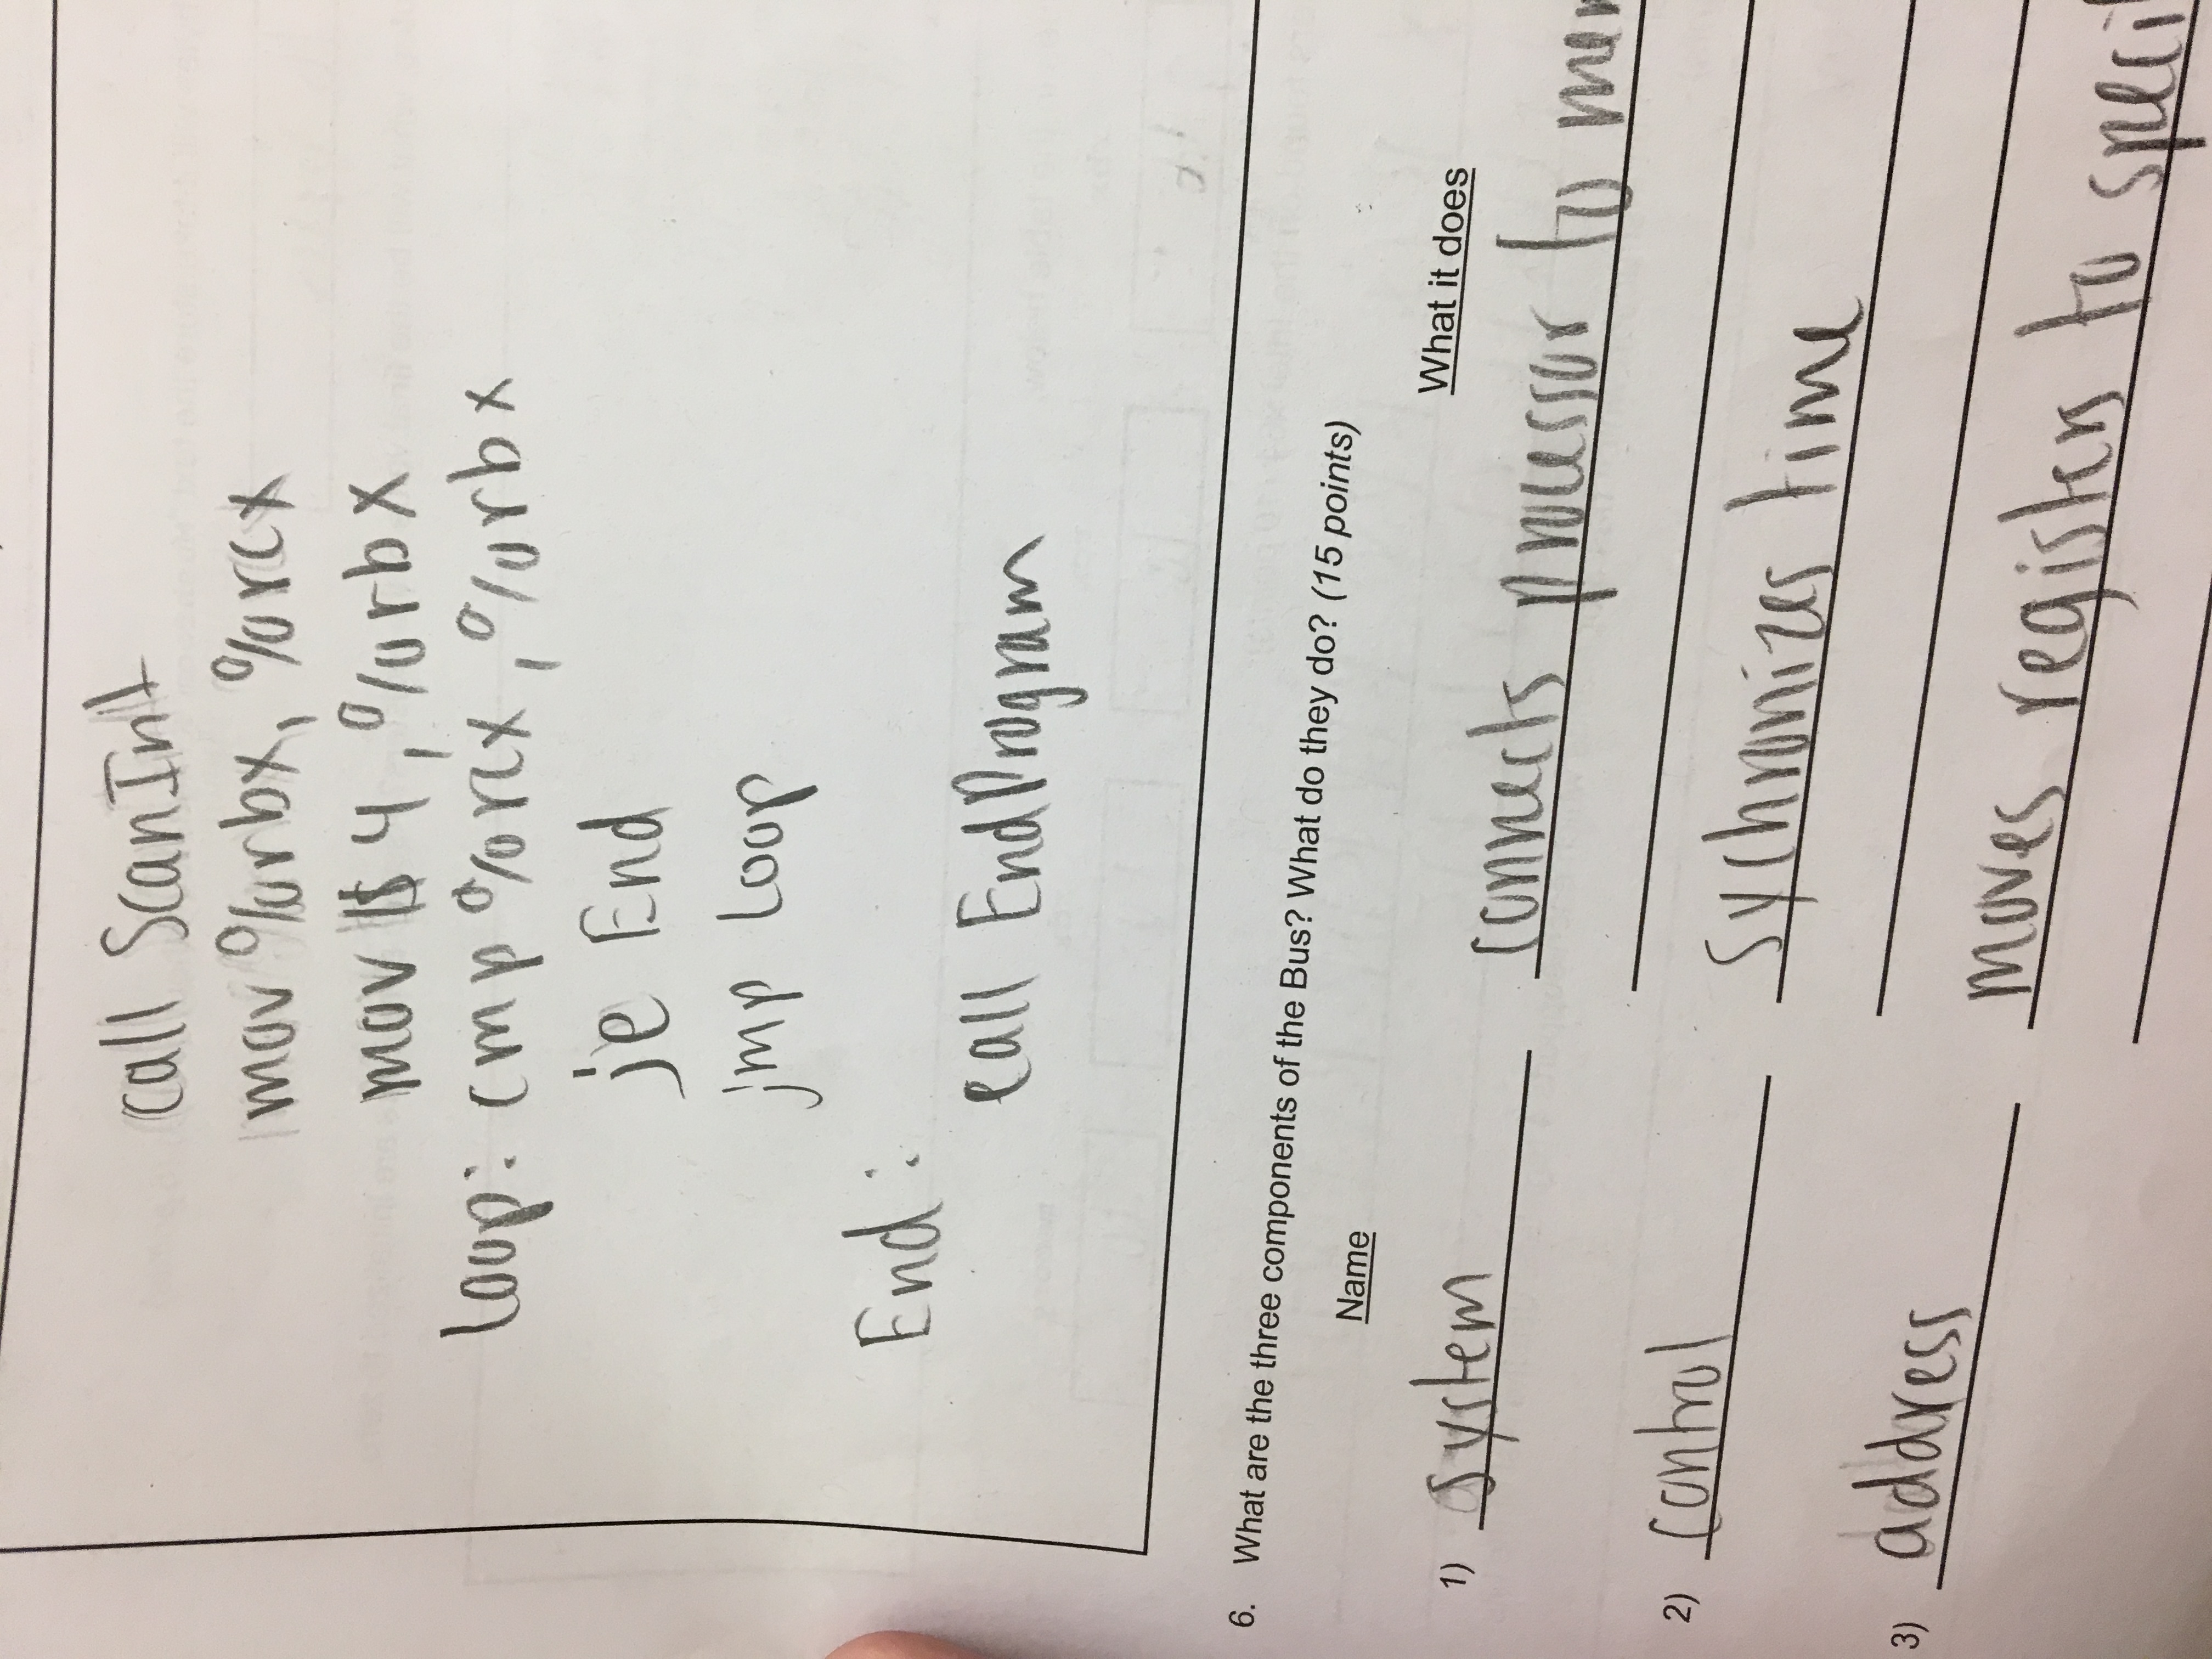 call ScanInt
mov %rbx, %rcx
mov $4, %rbx
Loop: cmp %rcx, %rbx
je End
jmp Loop
End:
call EndProgram
6. What are the three components of the Bus? What do they do? (15 points)
Name
What it does
1) system connects processor to mem
2) control sychronizes time
3) address moves registers to speci